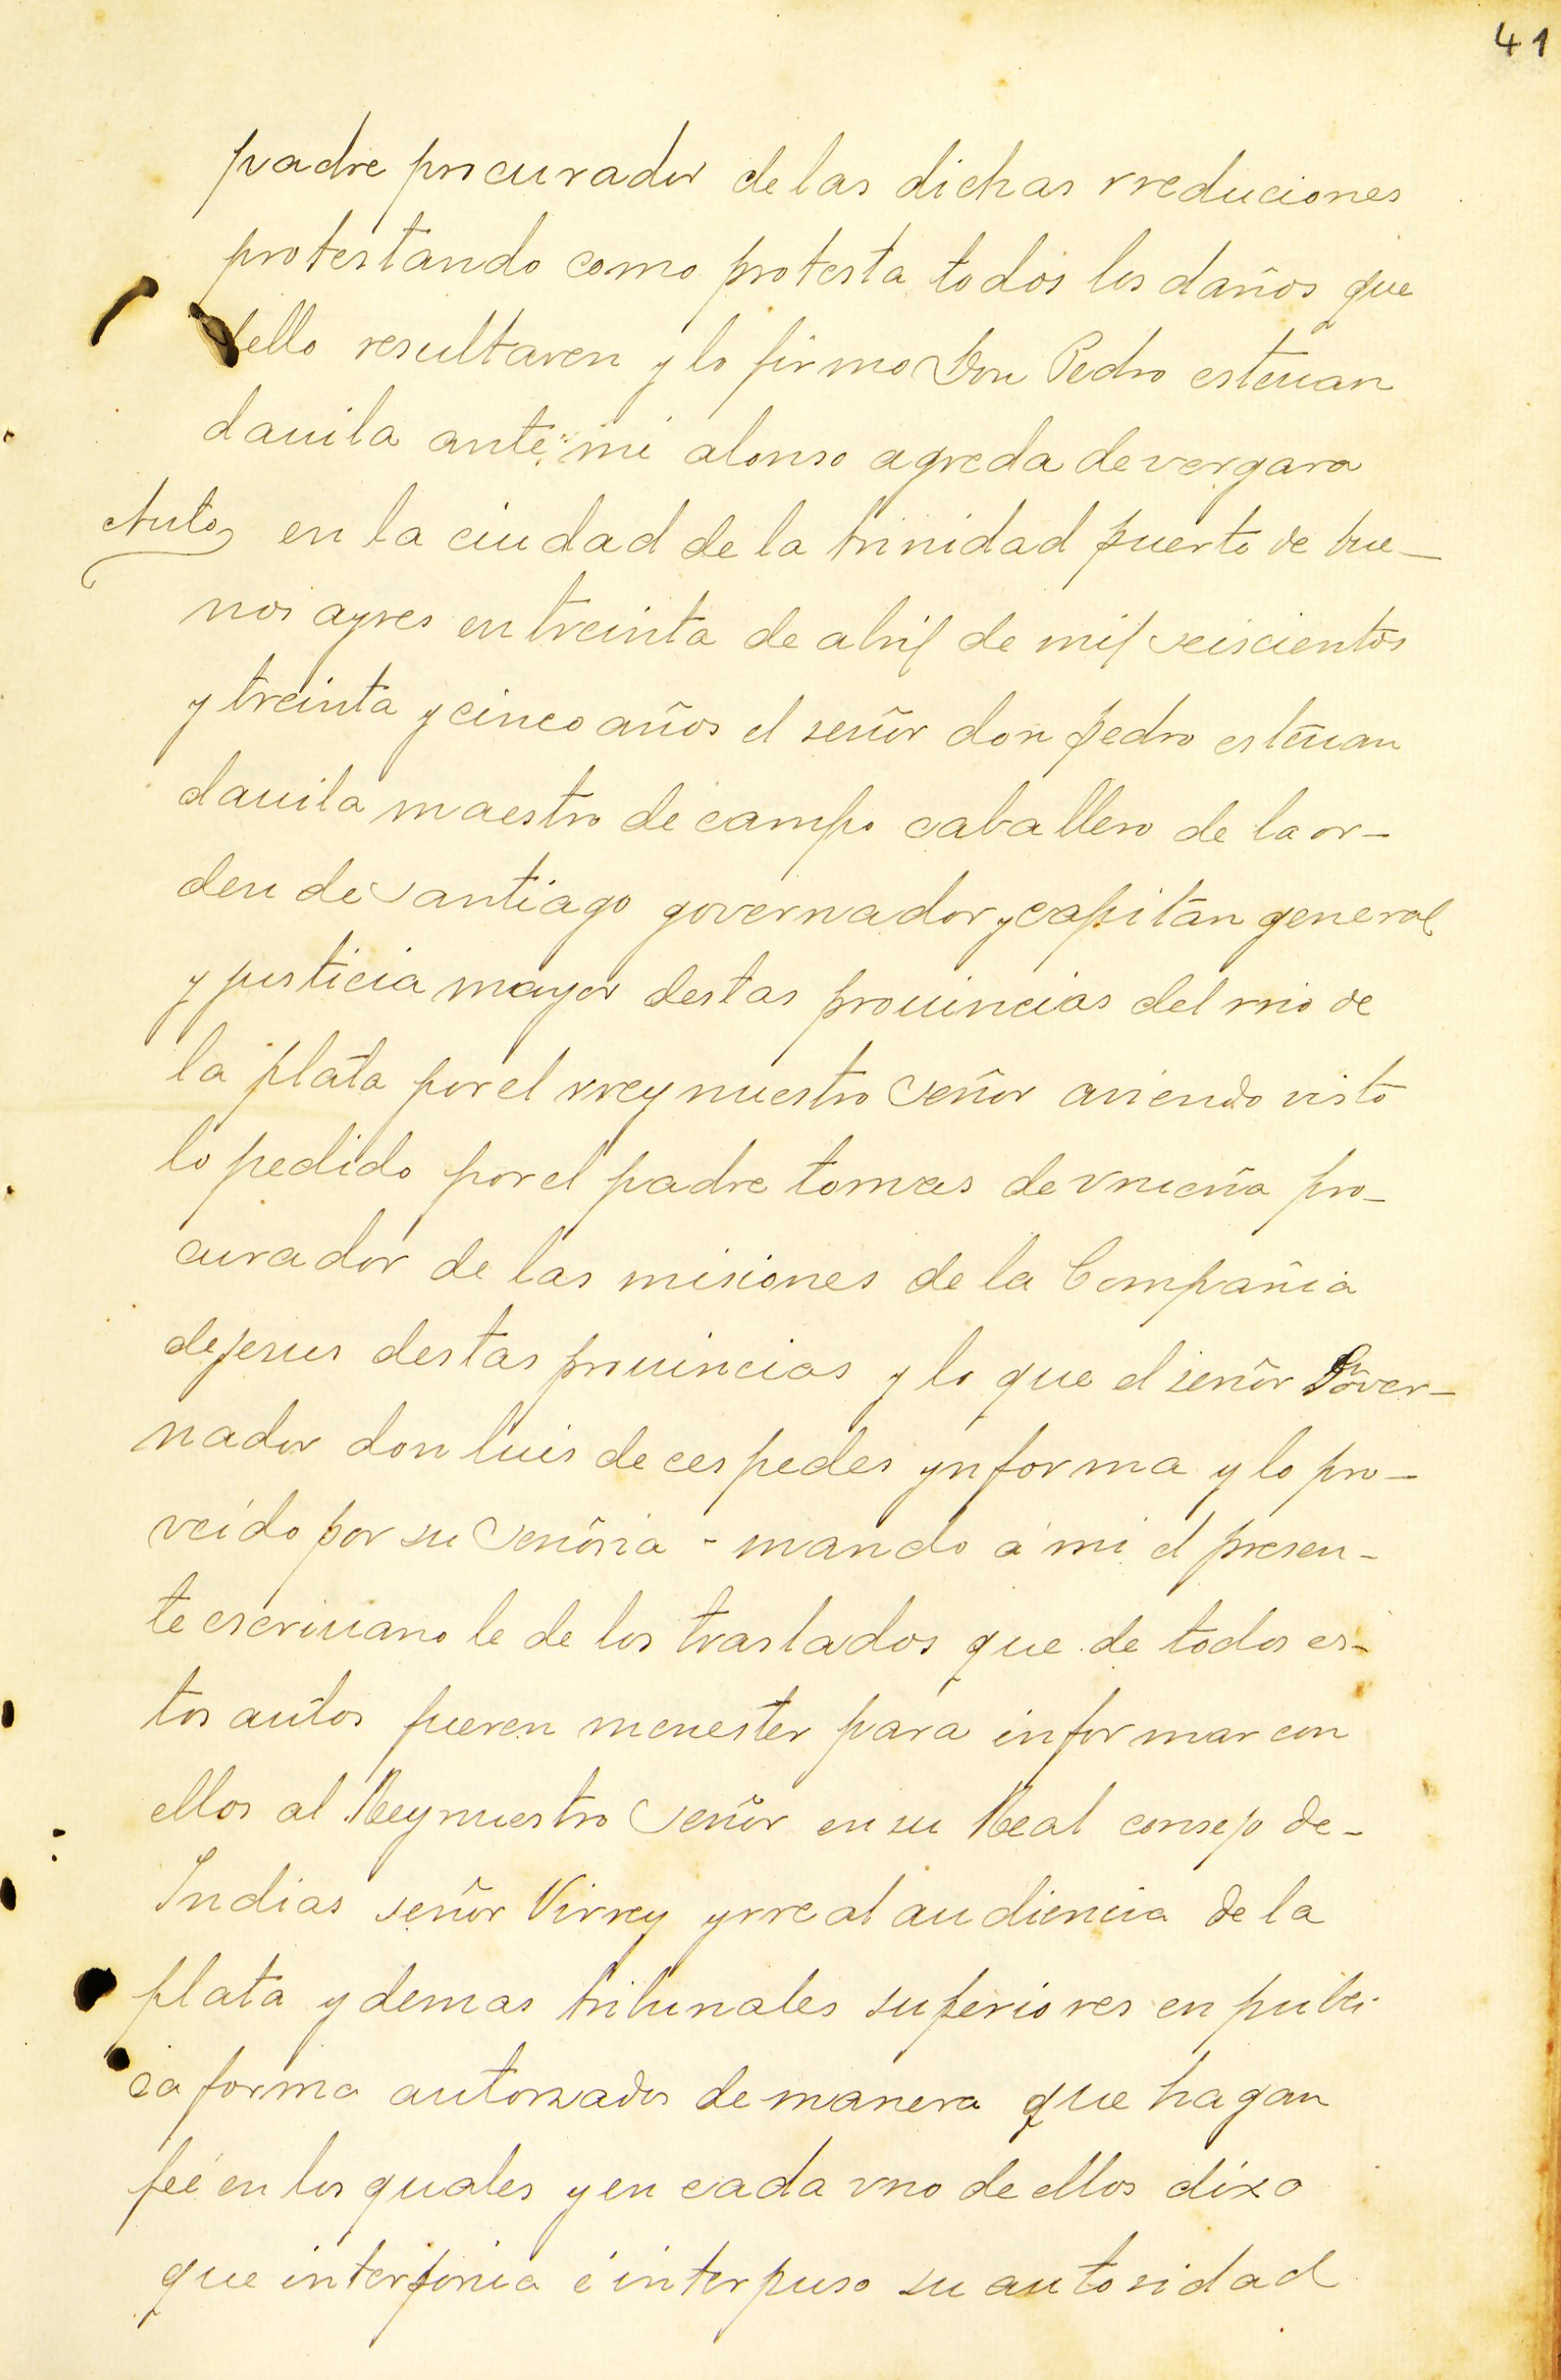 41
padre procurador de las dichas rreduciones
protestando como protesta todos los daños que
dello resultaren y lo firmo Don Pedro esteuan
dauila ante mi alonso agreda de vergara
Auto en la ciudad de la trinidad puerto de bue-
nos ayres en treinta de abril de mil seiscientos
y treinta y cinco años el señor don pedro esteuan
dauila maestro de campo caballero de la or-
den de santiago governador y capitan general
y justicia mayor destas prouincias del rrio de
la plata por el rrey nuestro señor auiendo visto
lo pedido por el padre tomas de vrueña pro-
curador de las misiones de la Compañia
de jesus destas prouincias y lo que el señor Gover-
nador don luis de cespedes ynforma y lo pro-
veido por su señoria - mando a mi el presen-
te escriuano le de los traslados que de todos es-
tos autos fueren menester para informar con
ellos al Rey nuestro señor en su Real consejo de-
Indias señor Virrey y rreal audiencia de la
plata y demas tribunales superiores en publi-
ca forma autorizados de manera que hagan
feé en los quales y en cada vno de ellos dixo
que interponia é interpuso su autoridad